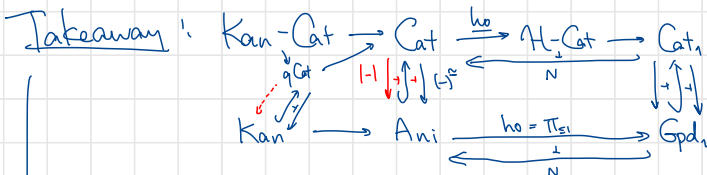 Takeaway: Kan-Cat → Cat ho → H-Cat → Cat₁
qCat |-| ⊣ ⊣ (-)^≃ ⊥ N ⊣ ⊣
Kan → Ani ho = π≤1 → Gpd₁
⊥
N